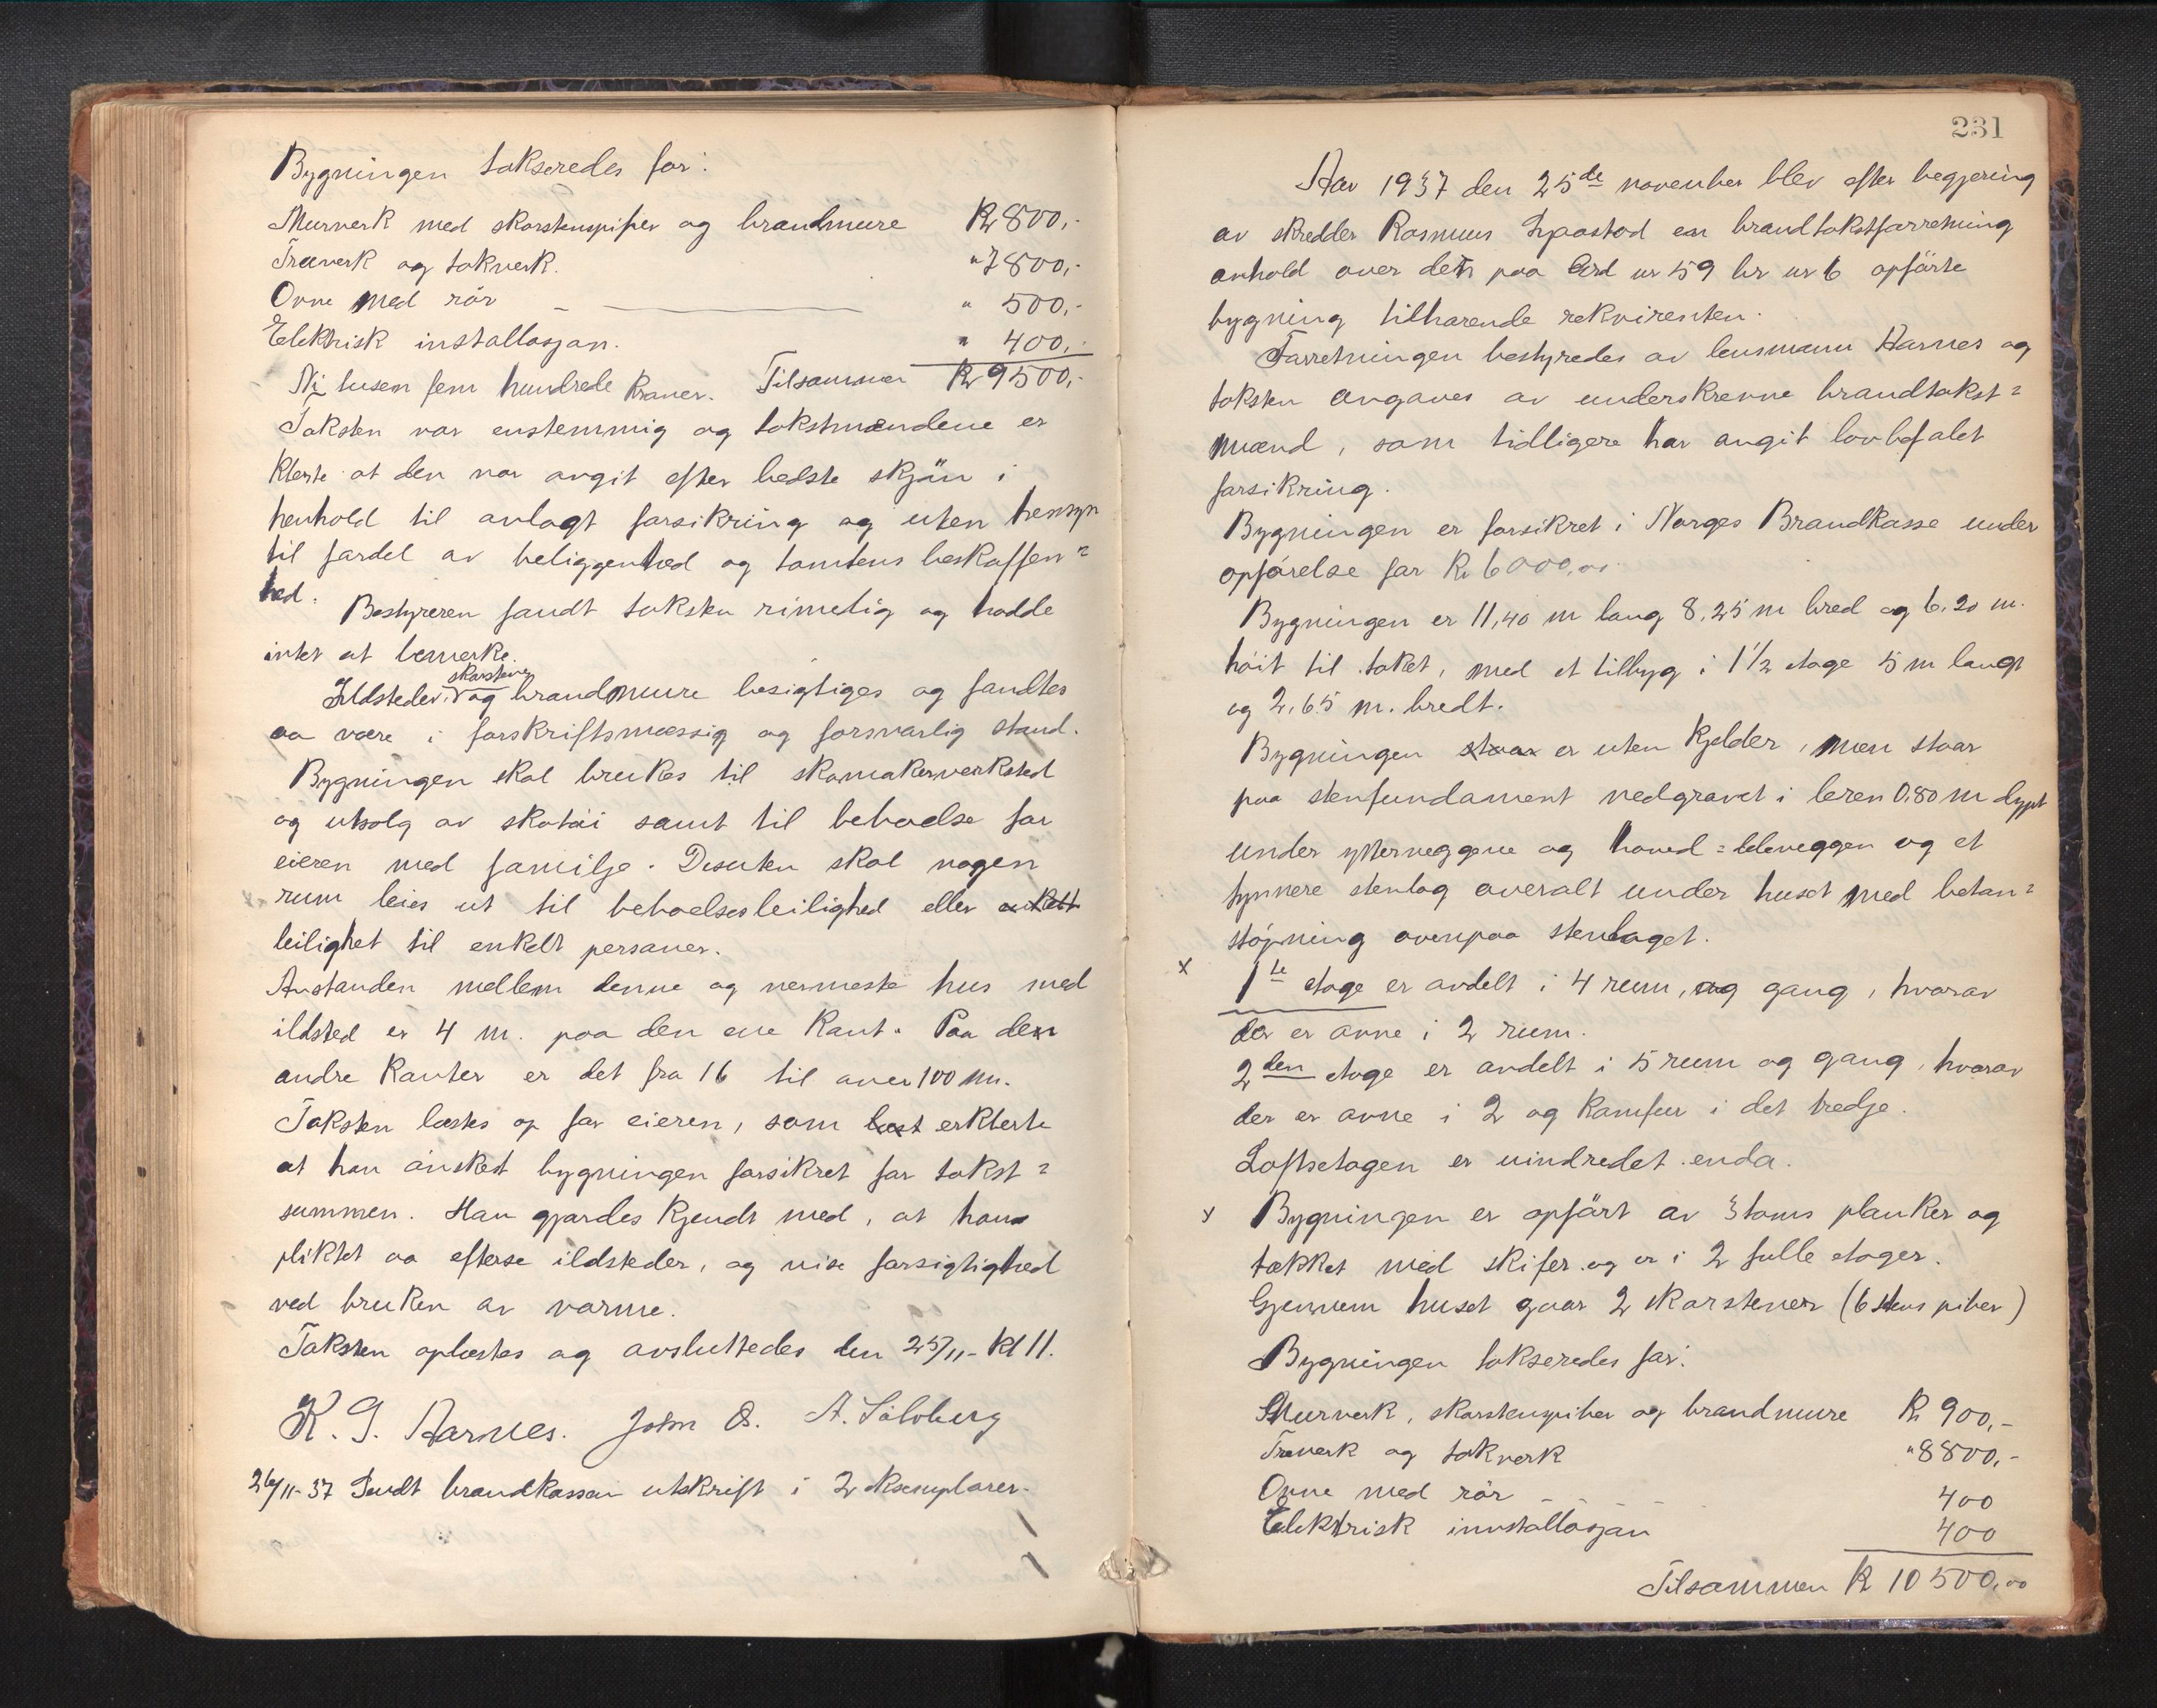 Bygningen takseredes for:
Murverk med skorstenspiper og brandmure Kr 800,-
Træverk og takverk. " 7800,-
Ovne med rör - " 500,-
Elektrisk installasjon. " 400,-
Ni tusen fem hundrede kroner. Tilsammen Kr 9500,-
Taksten var enstemmig og takstmændene er
klerte at den var avgit efter bedste skjön i
henhold til avlagt forsikring og uten hensyn
til fordel av beliggenhed og tomtens beskaffen=
hed. Bestyreren fandt taksten rimelig og hadde
intet at bemerke.
skorstene
Ildsteder og brandmure besigtiges og fandtes
aa være i forskriftsmæssig og forsvarlig stand.
Bygningen skal brukes til skomakerverksted
og utsalg av skotöi samt til beboelse for
eieren med familje. Desuten skal nogen
rum leies ut til beboelsesleilighed eller enkelt
leilighet til enkelt personer.
Avstanden mellem denne og nermeste hus med
ildsted er 4 m. paa den ene kant. Paa den
andre kanter er det fra 16 til over 100 m.
Taksten læstes op for eieren, som læst erklerte
at han önsket bygningen forsikret for takst=
summen. Han gjordes kjendt med, at han
pliktet aa efterse ildsteder, og vise forsigtighed
ved bruken av varme.
Taksten oplæstes og avsluttedes den 25/11- kl 11.
K. G. Aarnes. John O. A. Sålvberg
26/11-37 Sendt brandkassen utskrift i 2 eksemplarer.
231
Aar 1937 den 25de november blev efter begjering
av skredder Rasmus en brandtakstforretning
avhold over den paa Grd nr 59 br nr 6 opförte
bygning tilhørende rekvirenten.
Forretningen bestyredes av lensmann Aarnes og
taksten avgaves av underskrevne brandtakst=
mænd, som tidligere har avgit lovbefalet
forsikring.
Bygningen er forsikret i Norges Brandkasse under
opförelse for Kr 6000,00.
Bygningen er 11,40 m lang 8,25 m bred og 6,20 m.
höit til taket, med et tilbyg i 1½ etage 5 m langt
og 2,65 m. bredt.
Bygningen staar er uten kjelder, men staar
paa stenfundament nedgravet i leren 0,80 m dypt
under ytterveggene og hoved=deleveggen og et
tynnere stenlag overalt under huset med beton=
stöpning ovenpaa stenlaget.
x 1te etage er avdelt i 4 rum, og gang, hvorav
der er ovne i 2 rum.
2den etage er avdelt i 5 rum og gang, hvorav
der er ovne i 2 og komfur i det tredje.
Loftsetagen er uindredet enda.
x Bygningen er opfört av 3 toms planker og
tækket med skifer og er i 2 fulle etager.
Gjennem huset gaar 2 skorstener (6 stens piber)
Bygningen takseredes for:
Murverk, skorstenspiber og brandmure Kr 900,-
Treverk og takverk " 8800,-
Ovne med rör - - - - 400
Elektrisk innstallasjon 400
Tilsammen Kr 10500,00